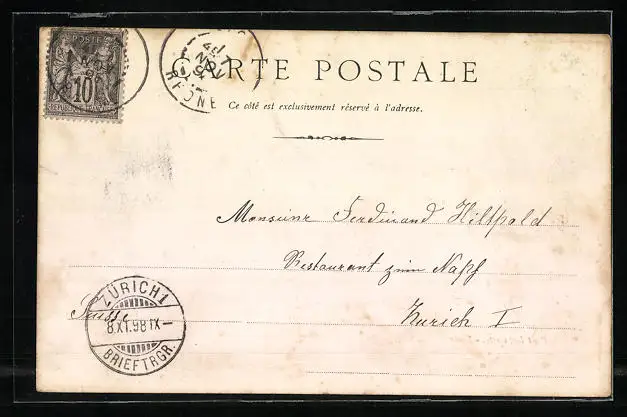 POSTES
10
REPUBLIQUE FRANÇAISE
RHONE
CARTE POSTALE
Ce côté est exclusivement réservé à l'adresse.
Monsieur Ferdinand Hiltpold
Restaurant zum Napf
Zurich I
Suisse
ZÜRICH 1
8.XI.98.IX–
BRIEFTRGR.